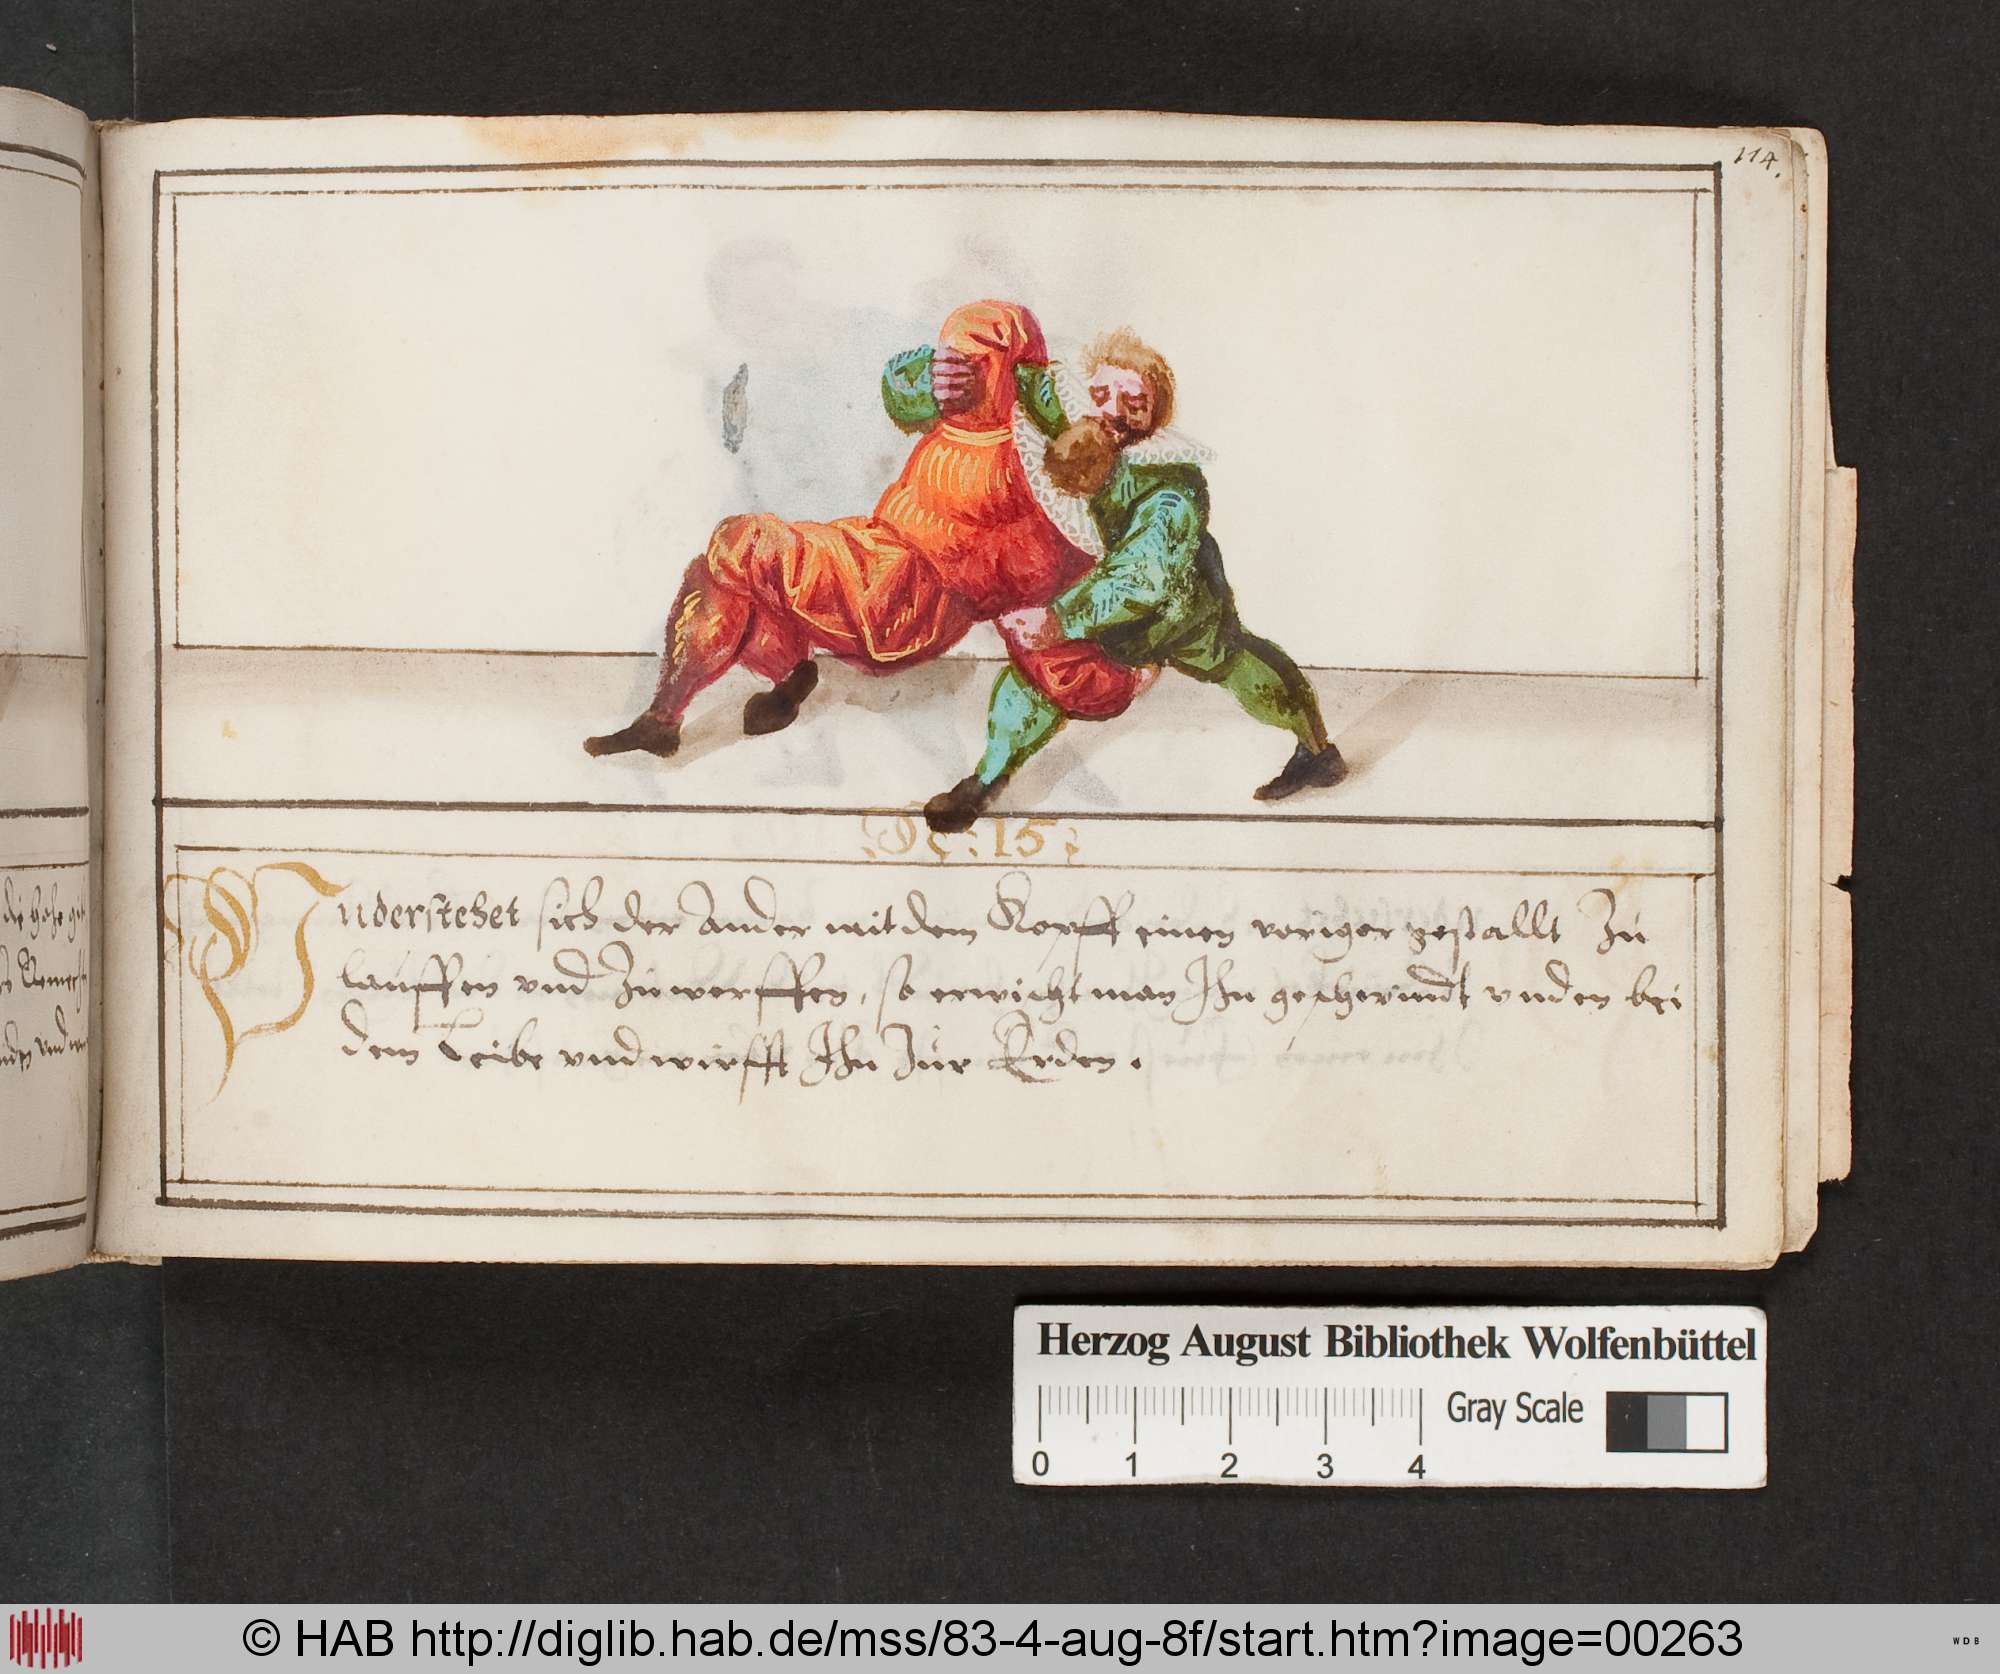 114.
No: 15
Vnderstehet sich der Ander mit dem Kopff einen voriger gestallt Zu
lauffen vnd Zuwerffen, so erwischt man Ihn geschwindt vnden bei
dem Leibe vnd wirfft Ihn Zur Erden.
die hohe
vnd
Herzog August Bibliothek Wolfenbüttel
Gray Scale
0 1 2 3 4
© HAB http://diglib.hab.de/mss/83-4-aug-8f/start.htm?image=00263
WDB